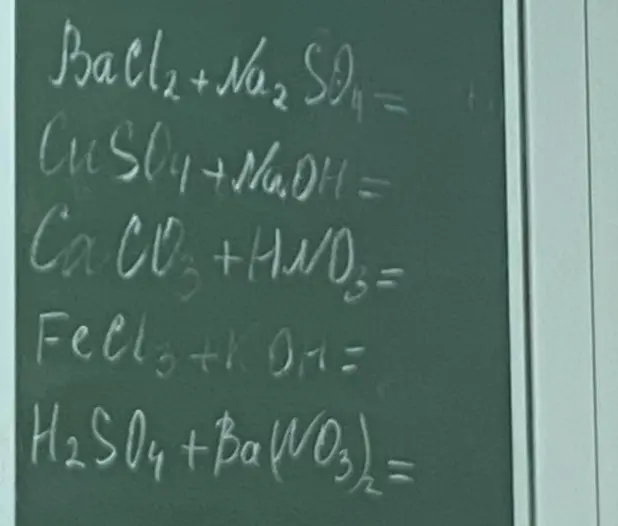 BaCl₂ + Na₂SO₄ =
CuSO₄ + NaOH =
CaCO₃ + HNO₃ =
FeCl₃ + KOH =
H₂SO₄ + Ba(NO₃)₂ =